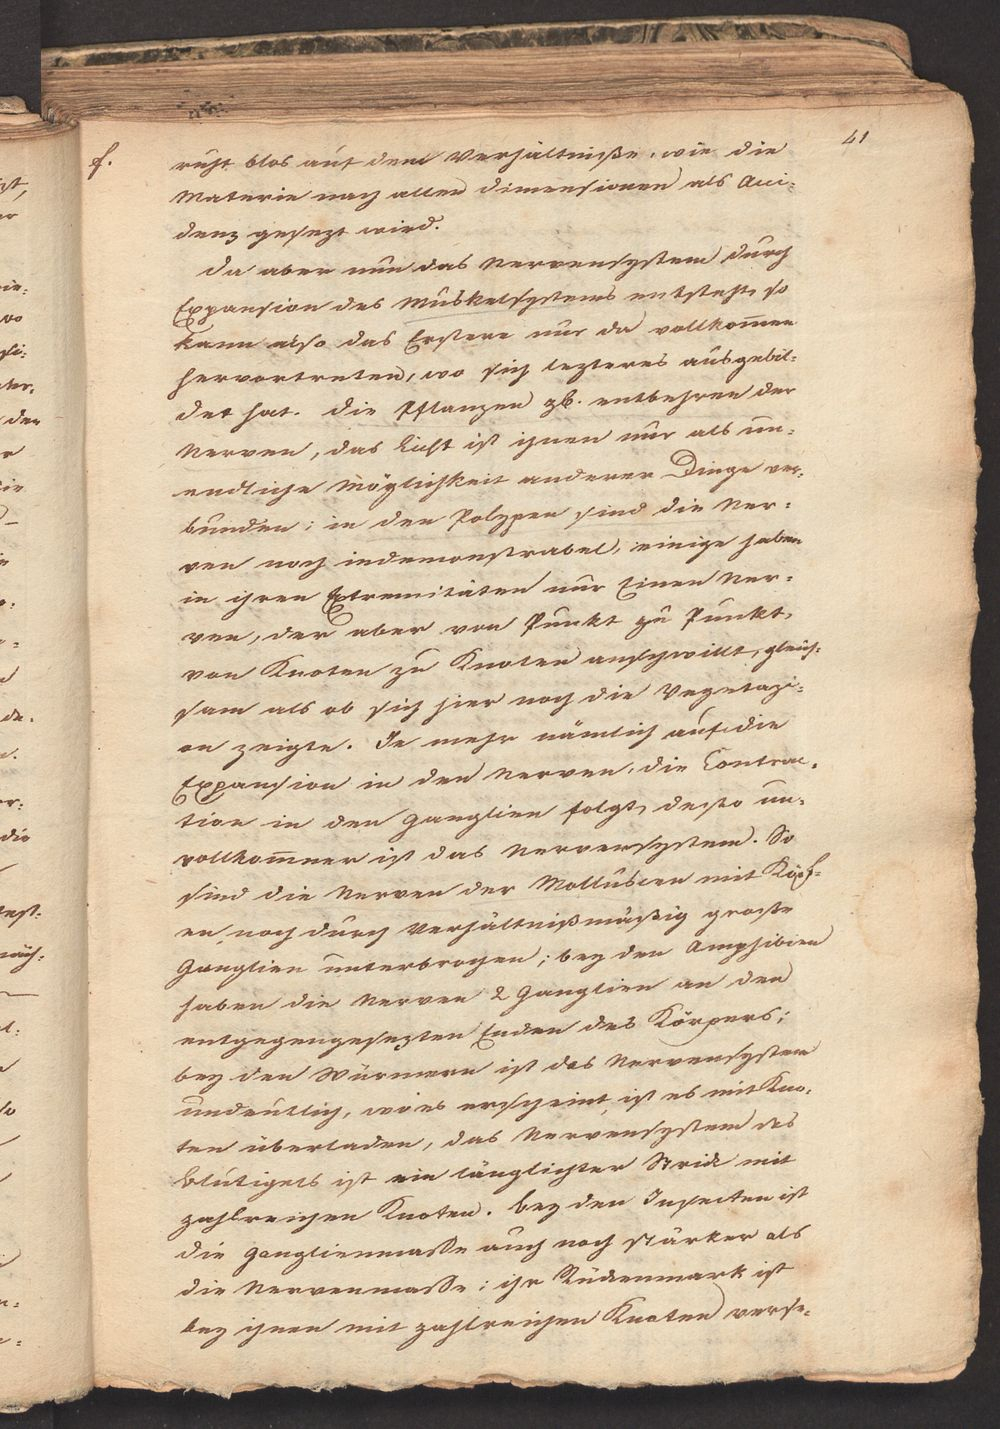 41
f.
ruht blos auf dem Verhältniße, wie die
Materie nach allen dimensionen als Acci-
denz gesezt wird.
da aber nun das Nervensystem durch
Expansion des Muskelsystems entsteht, so
kann also das Erstere nur da vollkom̅en
hervortreten, wo sich lezteres ausgebil-
det hat. die Pflanzen zb. entbehren der
Nerven, das Licht ist ihnen nur als un-
endliche Möglichkeit anderer Dinge ver-
bunden; in den Polypen sind die Ner-
ven noch indemonstrabel, einige haben
in ihren Extremitäten nur Einen Ner-
ven, der aber von Punkt zu Punkt,
von Knoten zu Knoten anschwillt, gleich-
sam als ob sich hier noch die Vegetazi-
on zeigte. Je mehr nämlich auf die
Expansion in den Nerven, die Contrac-
tion in den Ganglien folgt, desto un-
vollkom̅ner ist das Nervensystem. So
sind die Nerven der Mollusken mit Köpf-
en noch durch verhältnißmäßig große
Ganglien unterbrochen; bey den Amphibien
haben die Nerven 2 Ganglien an den
entgegengesezten Enden des Körpers;
bey den Würmern ist das Nervensystem
undeutlich, wo es erscheint ist es mit Kno-
ten überladen, das Nervensystem des
Blutigels ist ein länglichter Strick mit
zahlreichen Knoten. bey den Insecten ist
die Ganglienmaße auch noch stärker als
die Nervenmaße; ihr Rückenmark ist
bey ihnen mit zahlreichen Knoten verse-